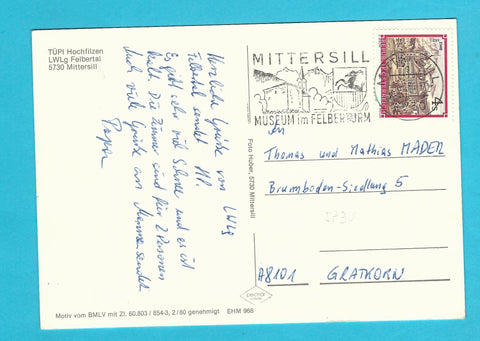 TÜPl Hochfilzen
LWLg Felbertal
5730 Mittersill
Herzliche Grüße von LWLg
Felbertal sendet
Es gibt sehr viel Schnee und es ist
kalt. Die Zimmer sind für 2 Personen
viele Grüße an Mama sendet
Papa
MITTERSILL
MUSEUM im FELBERTURM
4s
An
Thomas und Mathias MADER
Brumboden-Siedlung 5
A8101 GRATKORN
Foto Huber, 5730 Mittersill
Motiv vom BMLV mit Zl. 60.803 / 854-3, 2/80 genehmigt EHM 966